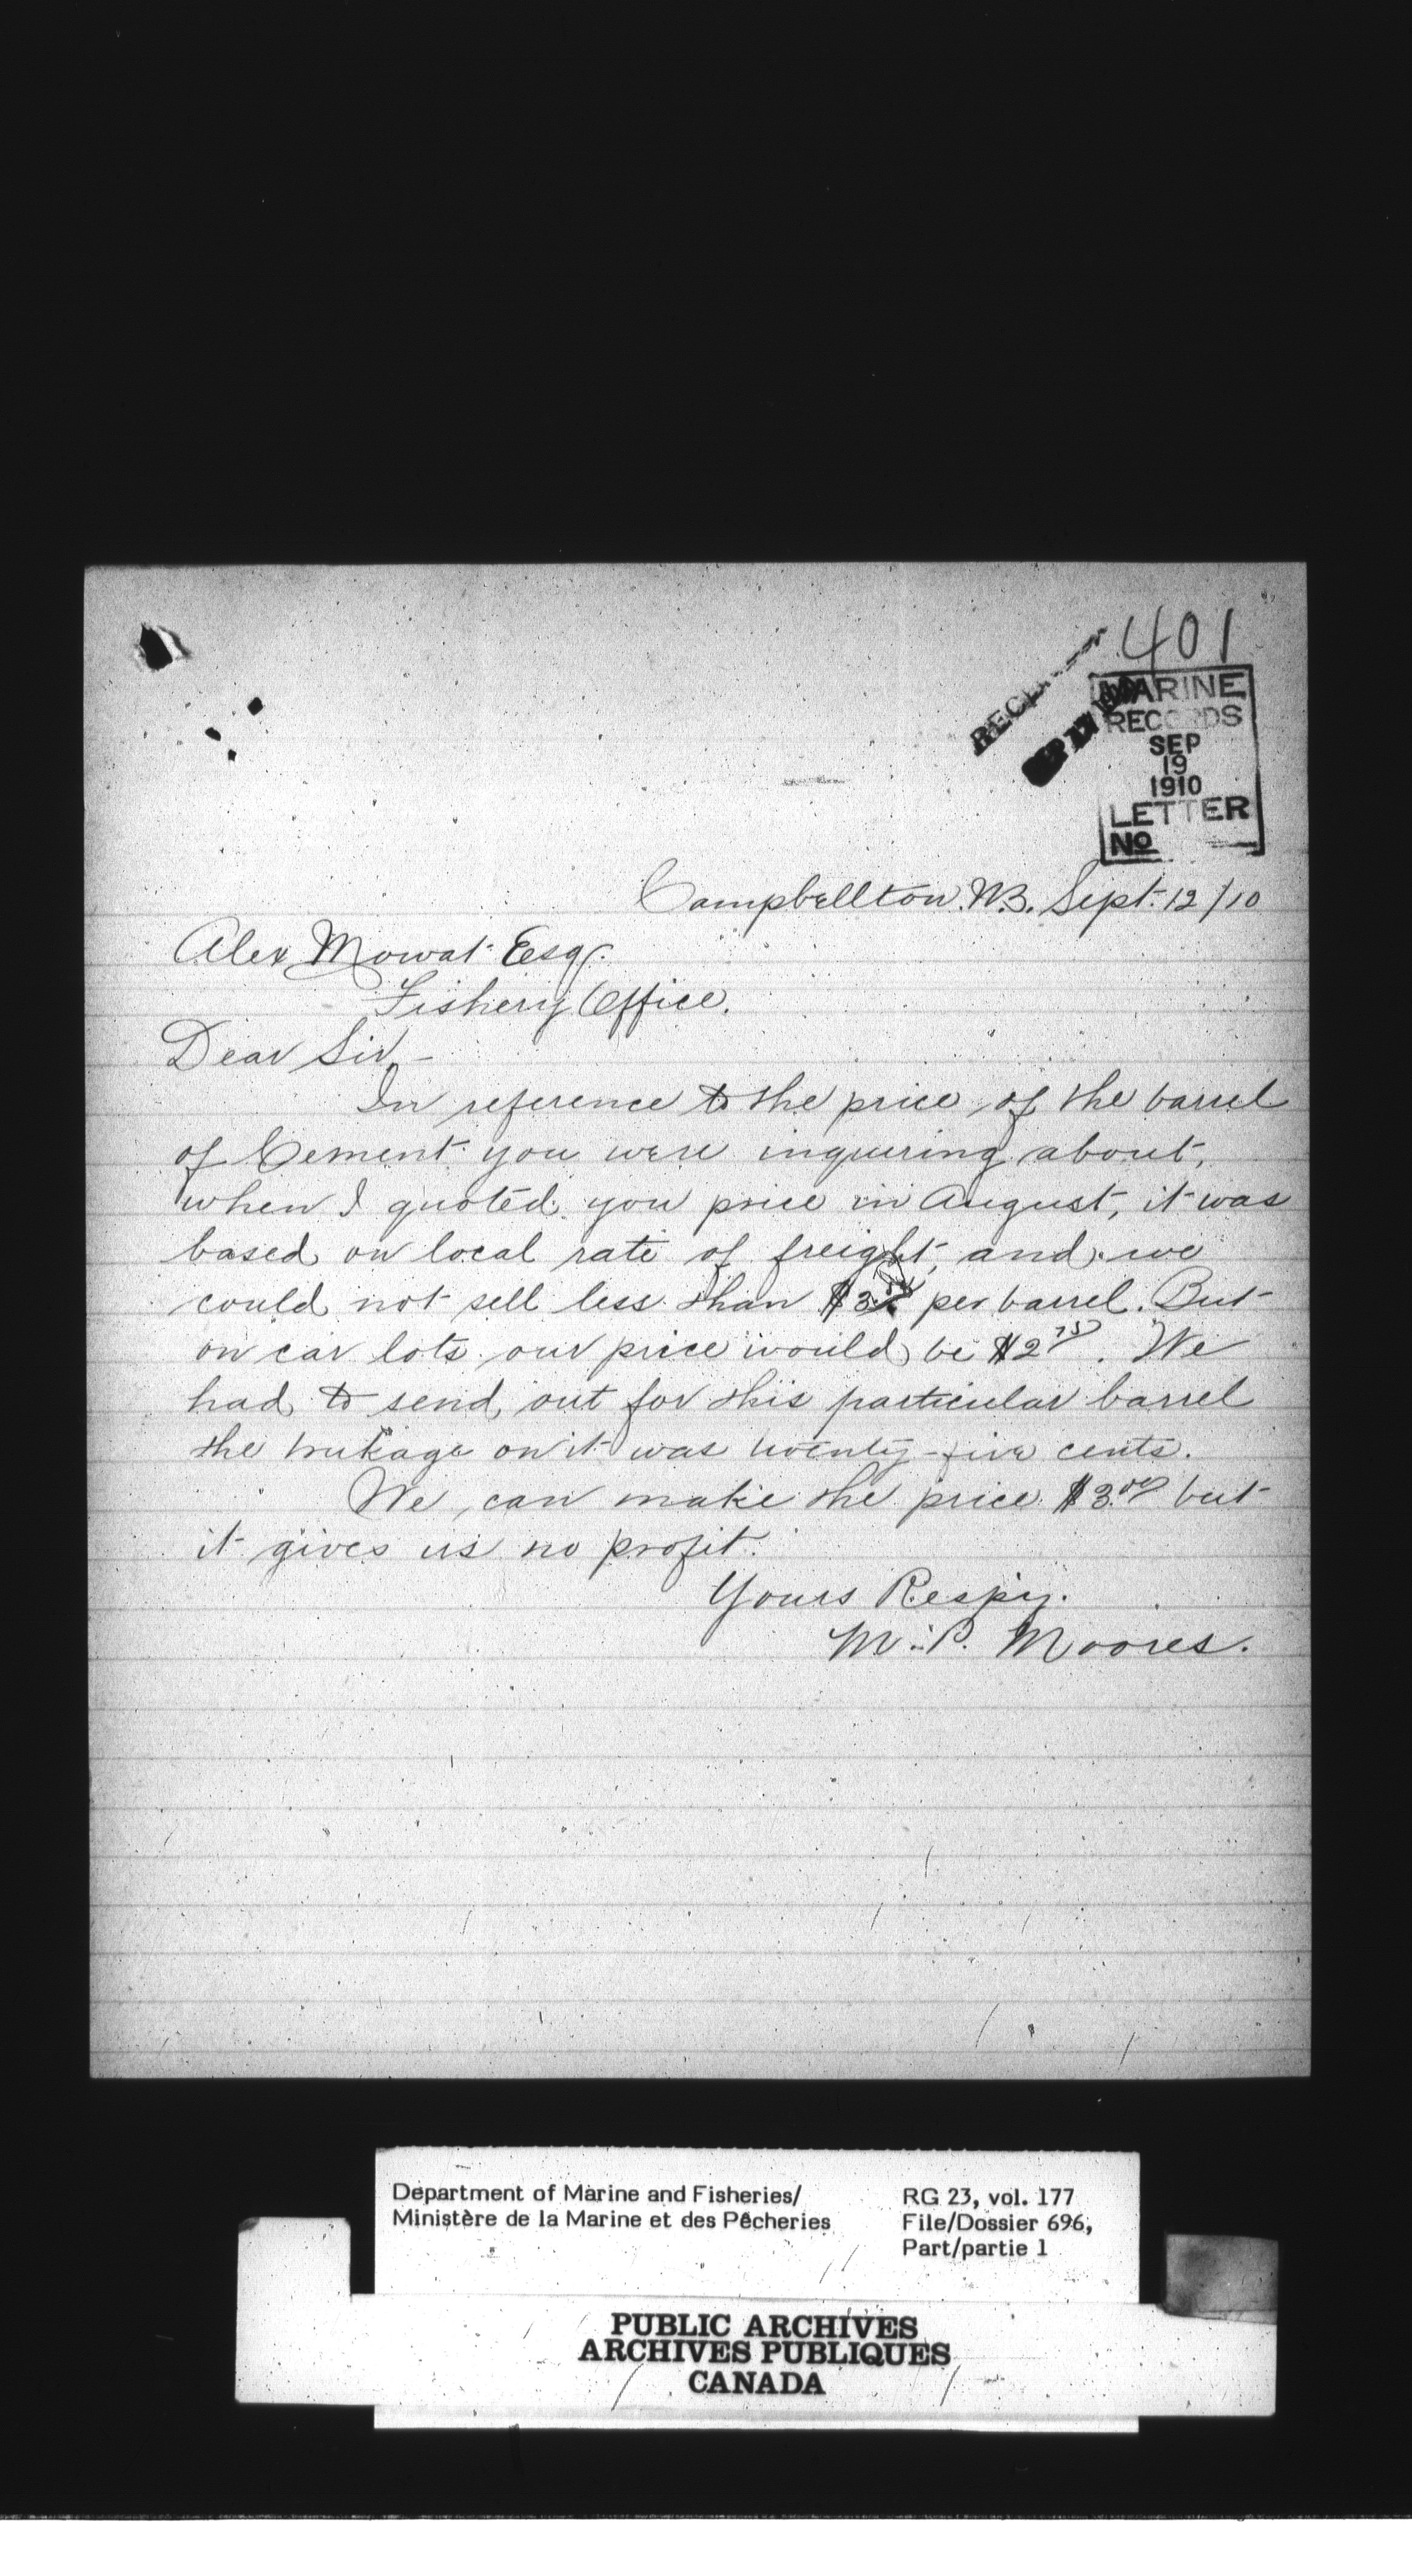 401
MARINE
RECORDS
SEP
19
1910
LETTER
No
Campbellton. N.B. Sept. 12/10
Alex Mowat Esqr.
Fishery Office.
Dear Sir, -
In reference to the price of the barrel
of Cement you were inquiring about,
when I quoted you price in August, it was
based on local rate of freight, and we
could not sell less than per barrel. But
on car lots our price would be $2.75. We
had to send out for this particular barrel
the truckage on it was twenty-five cents.
We can make the price $3.00 but
it gives us no profit.
Yours Respy.
M. P. Moores.
Department of Marine and Fisheries/
Ministère de la Marine et des Pêcheries
RG 23, vol. 177
File/Dossier 696,
Part/partie 1
PUBLIC ARCHIVES
ARCHIVES PUBLIQUES
CANADA